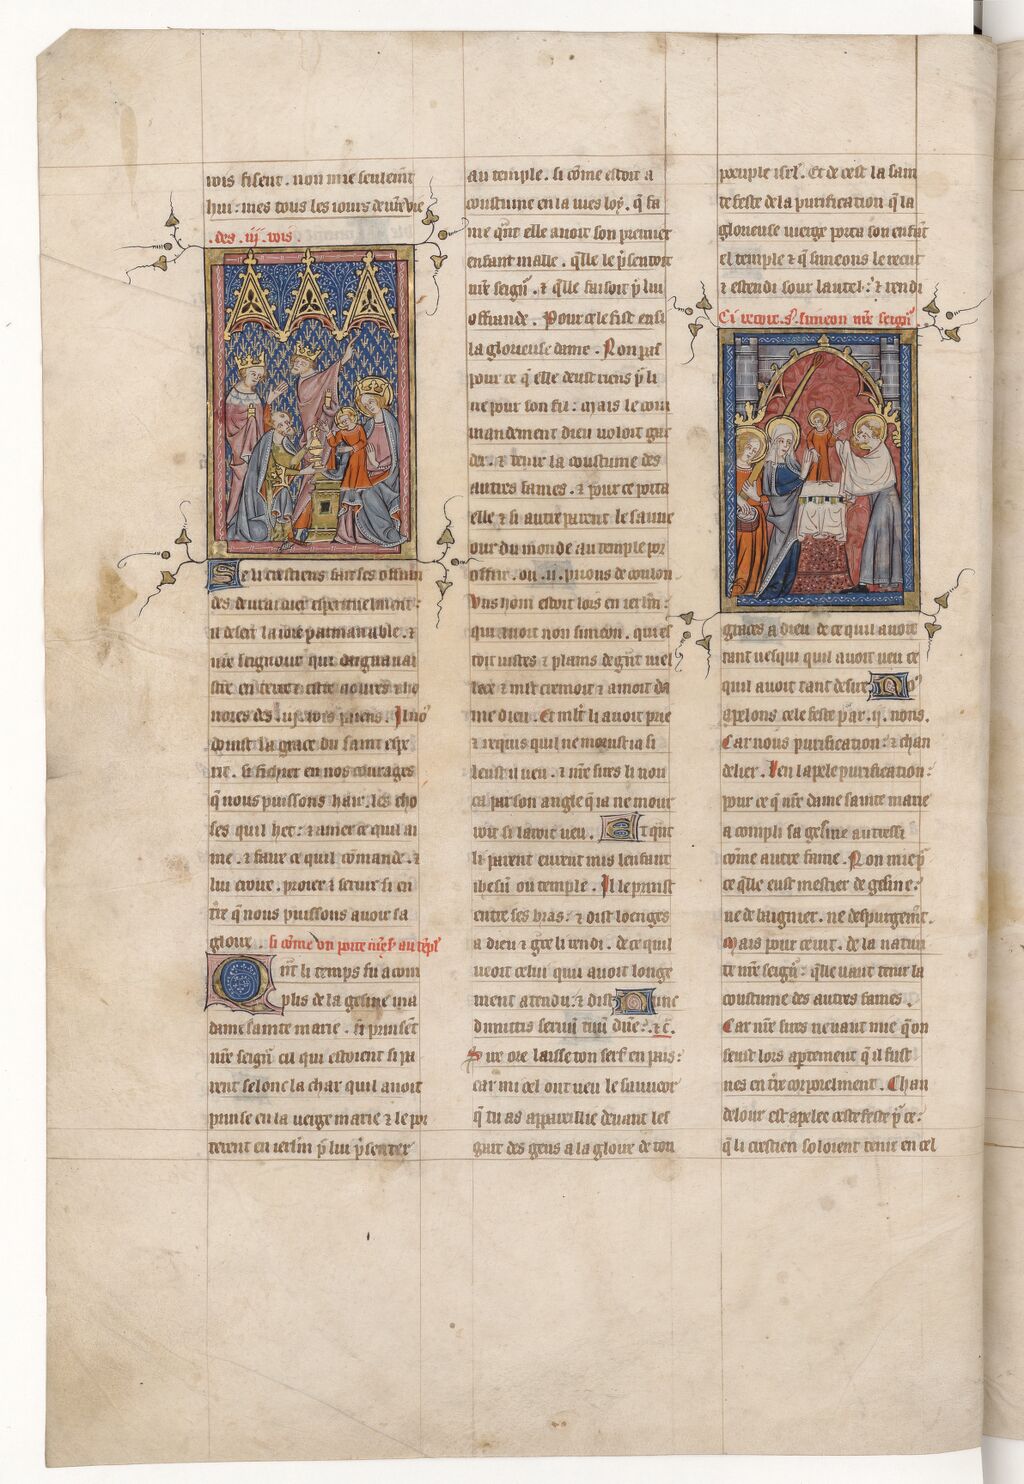 rois fisent. non mie seulem̃t
hui: mes tous les iours de ur̃e vie
.des .iij. rois.
Se li crestiens fait ses offran
des deurauuer esperituelment:
il deseit la ioie parmanable. ⁊
nr̃e seignour qui daigna nai
stre en terre ⁊ cistre
nores des .iij. rois paiens. Il nõ
doinst la grace du saint espe
rit. si fichier en nos courages
q̃ nous puissons hair. les cho
ses quil het: ⁊ amer ce quil ai
me. ⁊ faire ce quil cõmande. ⁊
lui croire. proier ⁊ seruir si en
tre q̃ nous puissons auoir sa
gloire. si cõme on porte nr̃e sʳ au tẽpl'
Qñt li temps fu acom
plis de la gesine ma
dame sainte marie. si prinsẽt
nr̃e seignʳ cil qui estoient si pa
rent selonc la char quil auoit
prinse en la uierge marie ⁊ le por
terent en ierlm̃ pʳ lui p̃senter
au temple. si cõme estoit a
coustume en la uies loy. q̃ fa
me qñt elle auoit son premier
enfant malle. q̃lle le p̃sentoit
nr̃e seignʳ. ⁊ q̃lle faisoit pʳ lui
offrande. Pour ce le fist ensi
la glorieuse dame. Non pas
pour ce q̃ elle deust riens pʳ li
ne pour son fil: mais le com
mandement dieu uoloit gar
der. ⁊ tenir la coustume des
autres fames. ⁊ pour ce porta
elle ⁊ si autre parent le sauue
our du monde au temple por
offrir. ou .ij. pijons de coulon.
Uns hom estoit lors en ierlm̃:
qui auoit non simeon. qui es
toit iustes ⁊ plains de gñt uiel
lece ⁊ mlt cremoit ⁊ amoit da
me dieu. Et mlt li auoit prie
⁊ requis quil ne morust ia si
leust il ueu. ⁊ nr̃e sires li non
ca par son angle q̃ ia ne mour
roit si lauroit ueu. Et qñt
li parent eurent mis lenfant
ihesũ ou temple. Il le prinst
entre ses bras: ⁊ dist loenges
a dieu ⁊ gr̃e li rendi. de ce quil
ueoit celui quil auoit longe
ment atendu: ⁊ dist Nunc
dimittis seruũ tuũ dñe: ⁊c̃.
Sire ore laisse ton serf en pais:
car mi oel ont ueu le sauueor
q̃ tu as appareillie deuant les
gart des gens a la gloire de ton
peuple isrl'. Et de cest la sain
te feste de la purification q̃ la
glorieuse uierge porta son enfãt
el temple ⁊ q̃ simeons le recut
⁊ estendi sour lautel: ⁊ rendi
Ci recoit .s. simeon nr̃e seignʳ.
graces a dieu de ce quil auoit
tant uesqui quil auoit ueu ce
quil auoit tant desire. Noʳ
apelons cele feste par .ij. nons.
Car nous purification: ⁊ chan
delier. Len lapele purification:
pour ce q̃ nr̃e dame sainte marie
a compli sa gesine autressi
cõme autre fame. Non mie pʳ
ce q̃lle eust mestier de gesine:
ne de baignier. ne despurgem̃t.
Mais pour ceuit. de la natiui
te nr̃e seignʳ: q̃lle uaut tenir la
coustume des autres fames.
Car nr̃e sires ne uaut mie q̃ on
seust lors apertement q̃ il fust
nes en tr̃e corporelment. Chan
delour est apelee ceste feste pʳ ce:
q̃ li crestien soloient tenir en cel